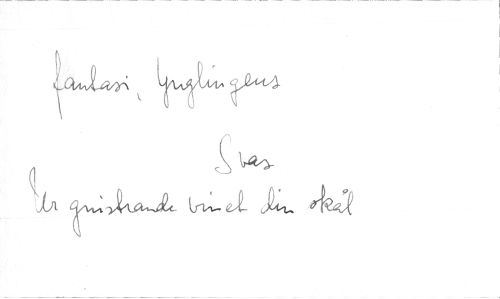 fantasi, Ynglingens
Svas
Ur gnistrande vinet din skål